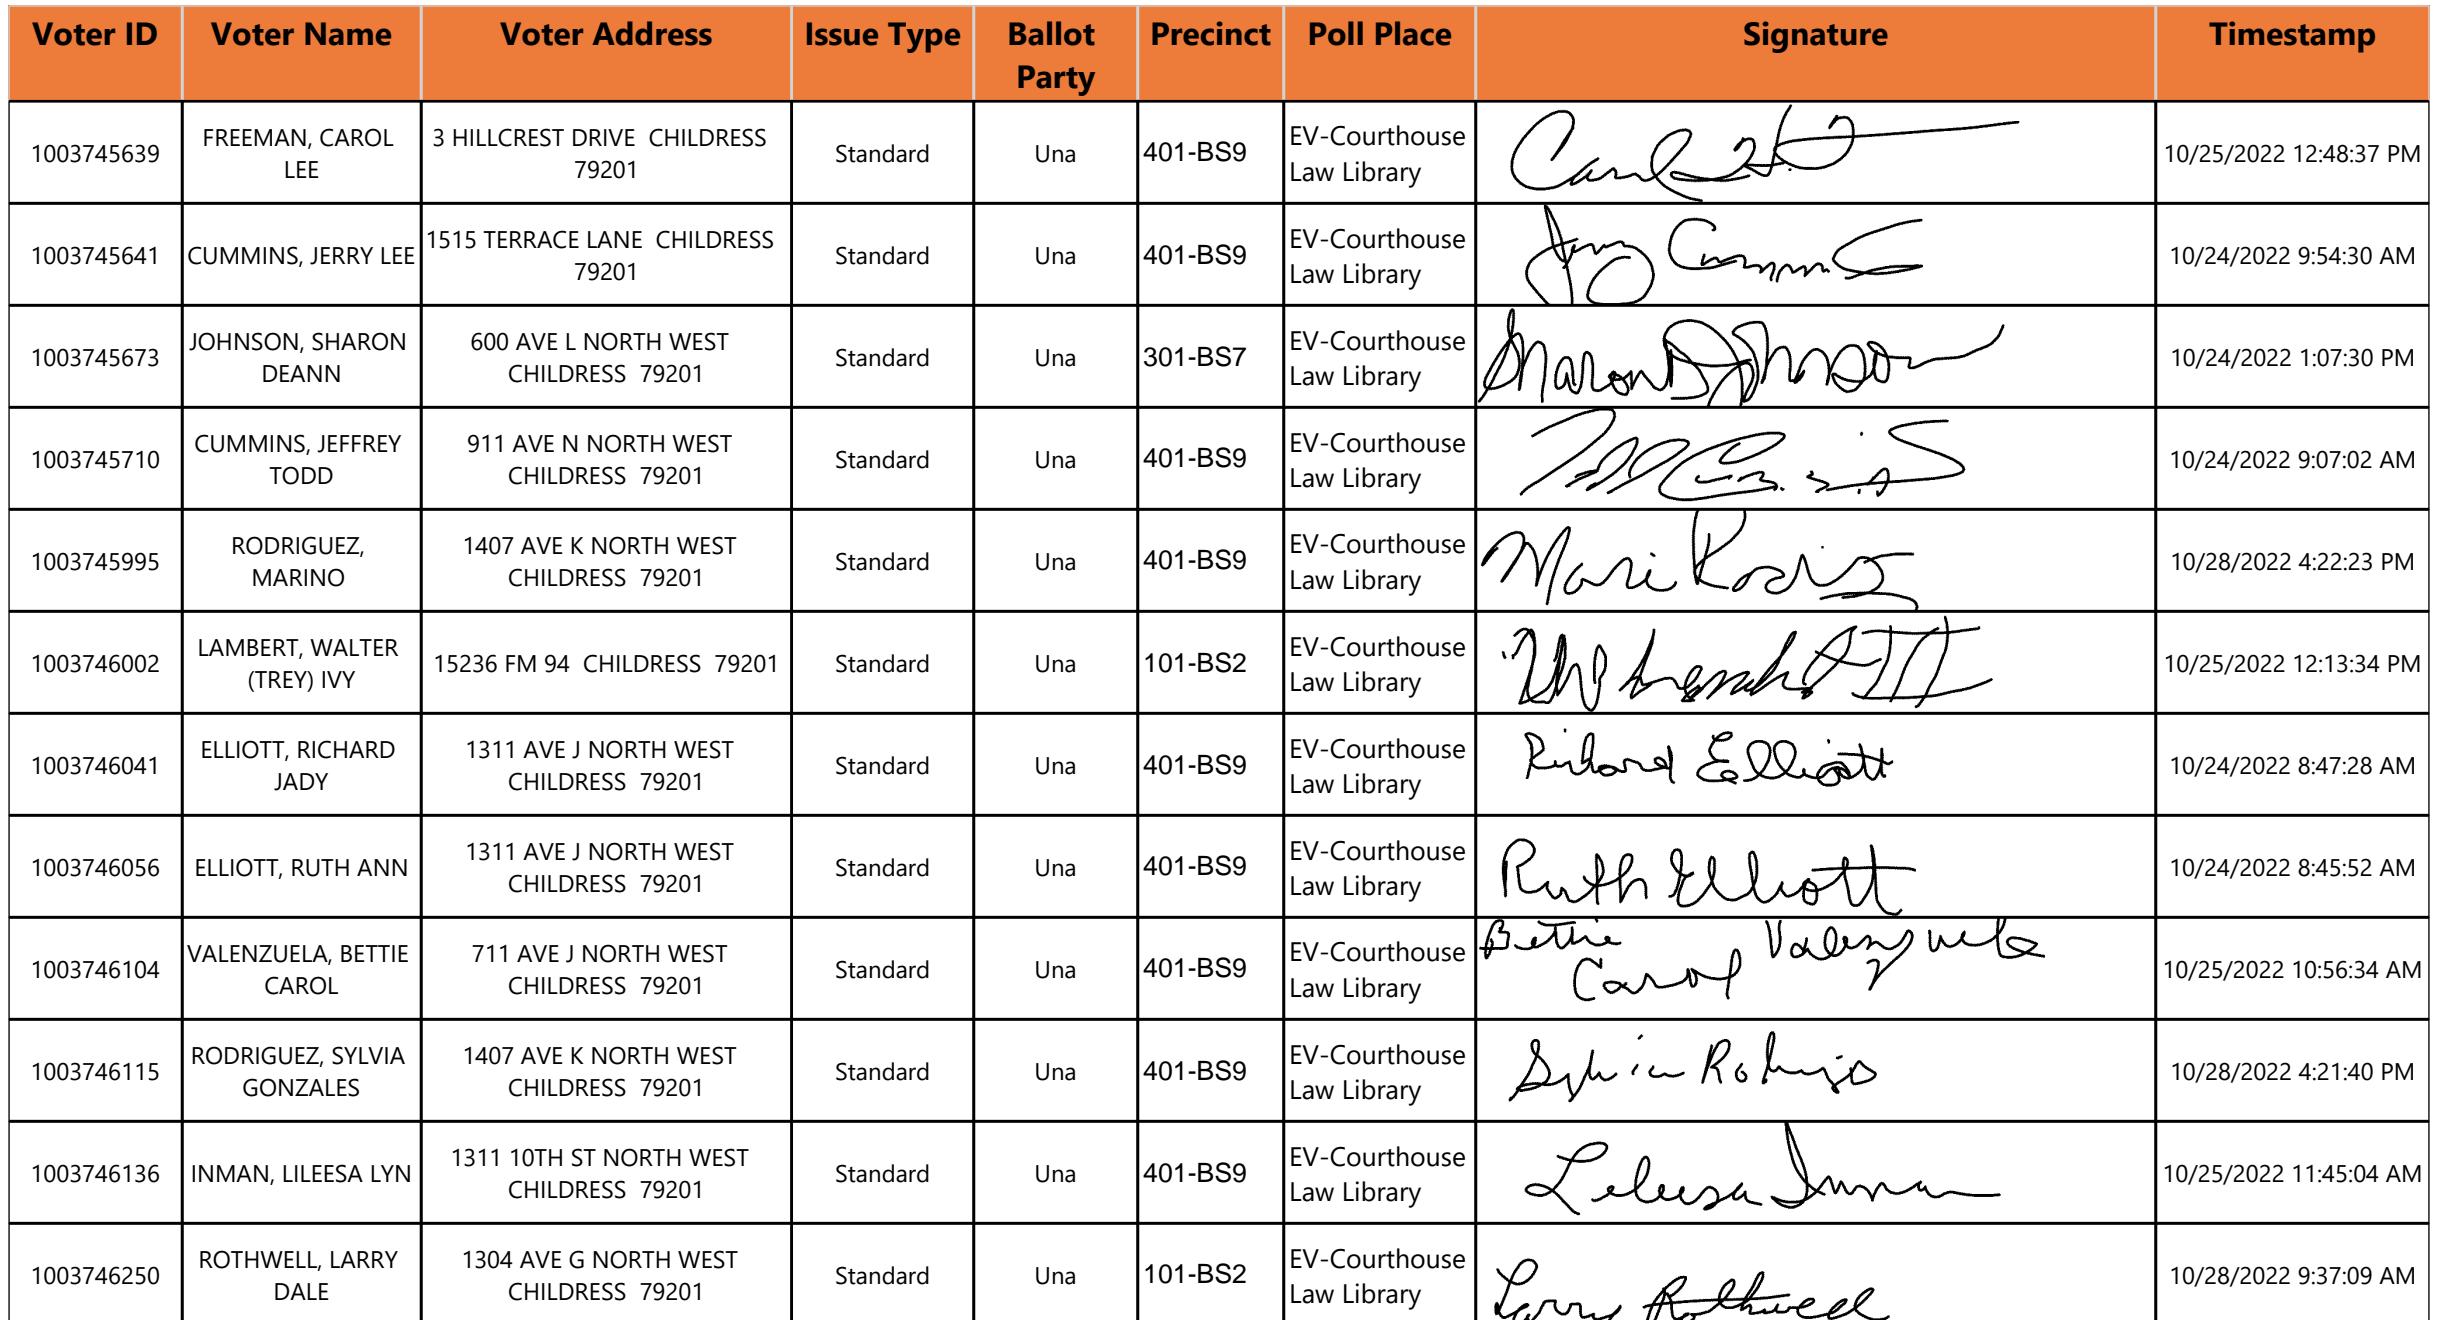 Voter ID Voter Name Voter Address Issue Type Ballot Party Precinct Poll Place Signature Timestamp
1003745639 FREEMAN, CAROL LEE 3 HILLCREST DRIVE CHILDRESS 79201 Standard Una 401-BS9 EV-Courthouse Law Library 10/25/2022 12:48:37 PM
1003745641 CUMMINS, JERRY LEE 1515 TERRACE LANE CHILDRESS 79201 Standard Una 401-BS9 EV-Courthouse Law Library 10/24/2022 9:54:30 AM
1003745673 JOHNSON, SHARON DEANN 600 AVE L NORTH WEST CHILDRESS 79201 Standard Una 301-BS7 EV-Courthouse Law Library Sharon D Johnson 10/24/2022 1:07:30 PM
1003745710 CUMMINS, JEFFREY TODD 911 AVE N NORTH WEST CHILDRESS 79201 Standard Una 401-BS9 EV-Courthouse Law Library 10/24/2022 9:07:02 AM
1003745995 RODRIGUEZ, MARINO 1407 AVE K NORTH WEST CHILDRESS 79201 Standard Una 401-BS9 EV-Courthouse Law Library 10/28/2022 4:22:23 PM
1003746002 LAMBERT, WALTER (TREY) IVY 15236 FM 94 CHILDRESS 79201 Standard Una 101-BS2 EV-Courthouse Law Library 10/25/2022 12:13:34 PM
1003746041 ELLIOTT, RICHARD JADY 1311 AVE J NORTH WEST CHILDRESS 79201 Standard Una 401-BS9 EV-Courthouse Law Library Richard Elliott 10/24/2022 8:47:28 AM
1003746056 ELLIOTT, RUTH ANN 1311 AVE J NORTH WEST CHILDRESS 79201 Standard Una 401-BS9 EV-Courthouse Law Library Ruth Elliott 10/24/2022 8:45:52 AM
1003746104 VALENZUELA, BETTIE CAROL 711 AVE J NORTH WEST CHILDRESS 79201 Standard Una 401-BS9 EV-Courthouse Law Library Bettie Carol Valenzuela 10/25/2022 10:56:34 AM
1003746115 RODRIGUEZ, SYLVIA GONZALES 1407 AVE K NORTH WEST CHILDRESS 79201 Standard Una 401-BS9 EV-Courthouse Law Library 10/28/2022 4:21:40 PM
1003746136 INMAN, LILEESA LYN 1311 10TH ST NORTH WEST CHILDRESS 79201 Standard Una 401-BS9 EV-Courthouse Law Library Lileesa Inman 10/25/2022 11:45:04 AM
1003746250 ROTHWELL, LARRY DALE 1304 AVE G NORTH WEST CHILDRESS 79201 Standard Una 101-BS2 EV-Courthouse Law Library Larry Rothwell 10/28/2022 9:37:09 AM